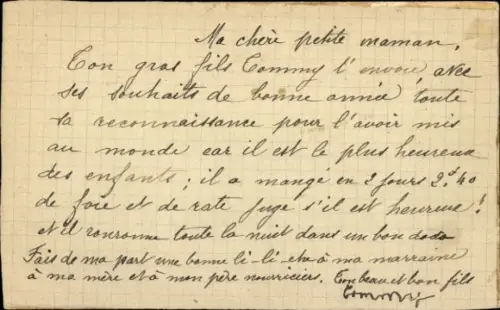 Ma chère petite maman,
Ton gros fils Tommy t'envoie, avec
ses souhaits de bonne année, toute
sa reconnaissance pour l'avoir mis
au monde car il est le plus heureux
des enfants ; il a mangé en 2 jours 2.40
de foie et de rate juge s'il est heureux !
et il ronronne toute la nuit dans un bon dodo
Fais de ma part une bonne li-li-che à ma marraine
à ma mère et à mon père nourriciers. Ton beau et bon fils
Tommy